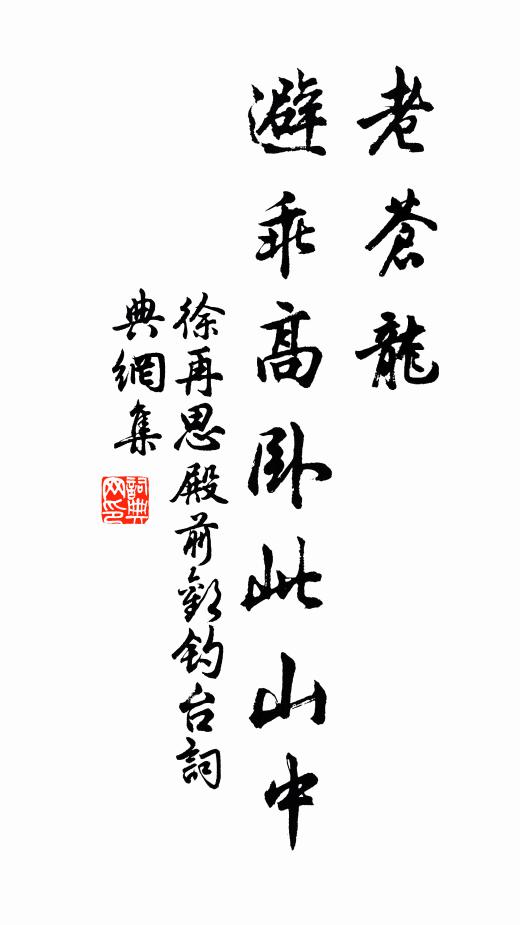 老蒼龍
避乖高卧此山中
徐再思殿前歡釣台詞
典網集
詞典网印